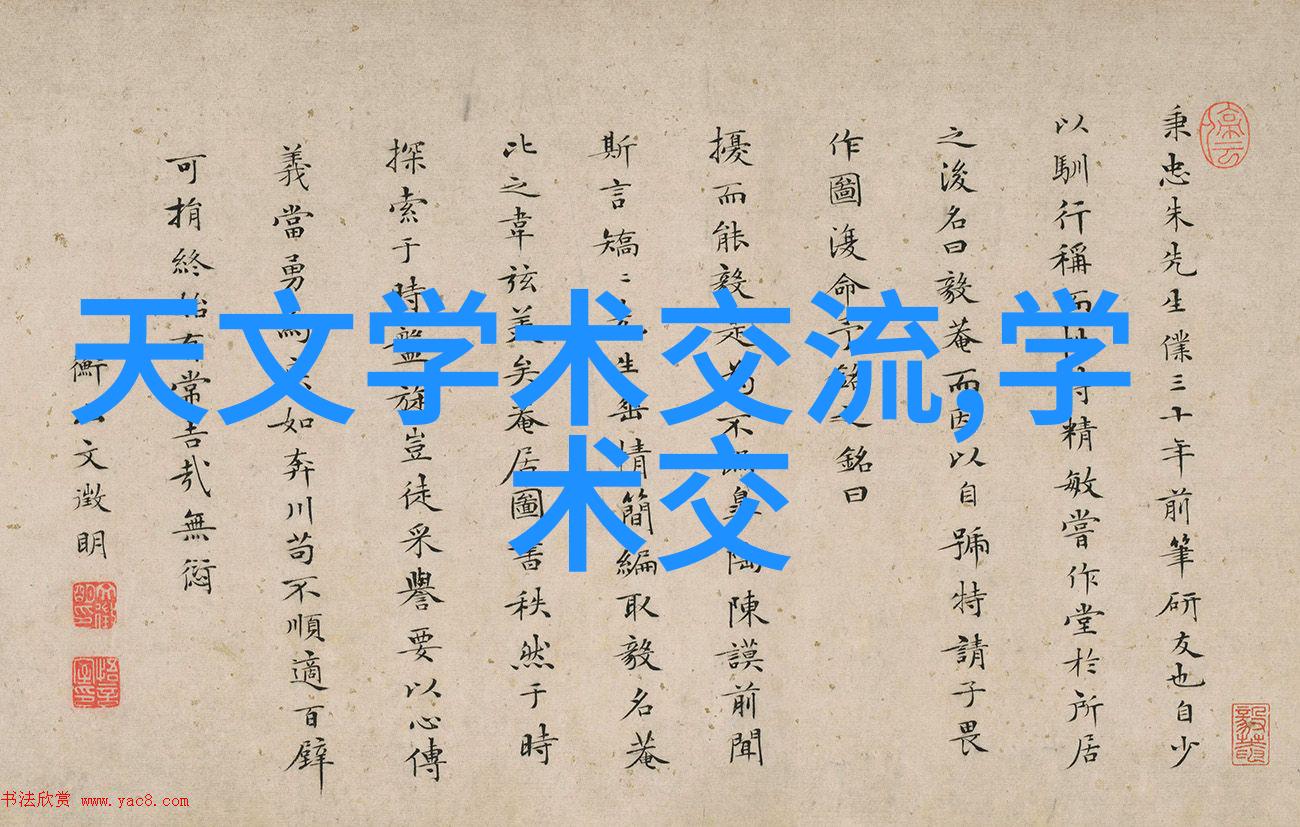 天文学术交流,学
术交
秉忠朱先生僕三十年前筆研友也自少
以馴行稱而精敏嘗作堂於所居
之後名曰毅菴而因以自號特請子畏
作圖復命予銘之銘曰
擾而能毅是不陶陳謨前聞
斯言矯〻先生情簡編取毅名菴
比之韋弦美矣菴居圖書秩然于時
探索于時盤旋豈徒采譽要以心傳
義當勇如奔川苟不順適百璧
可捐終始有常吉哉無愆
衡山文徵明
停云
毅菴
书法欣赏 www.yac8.com